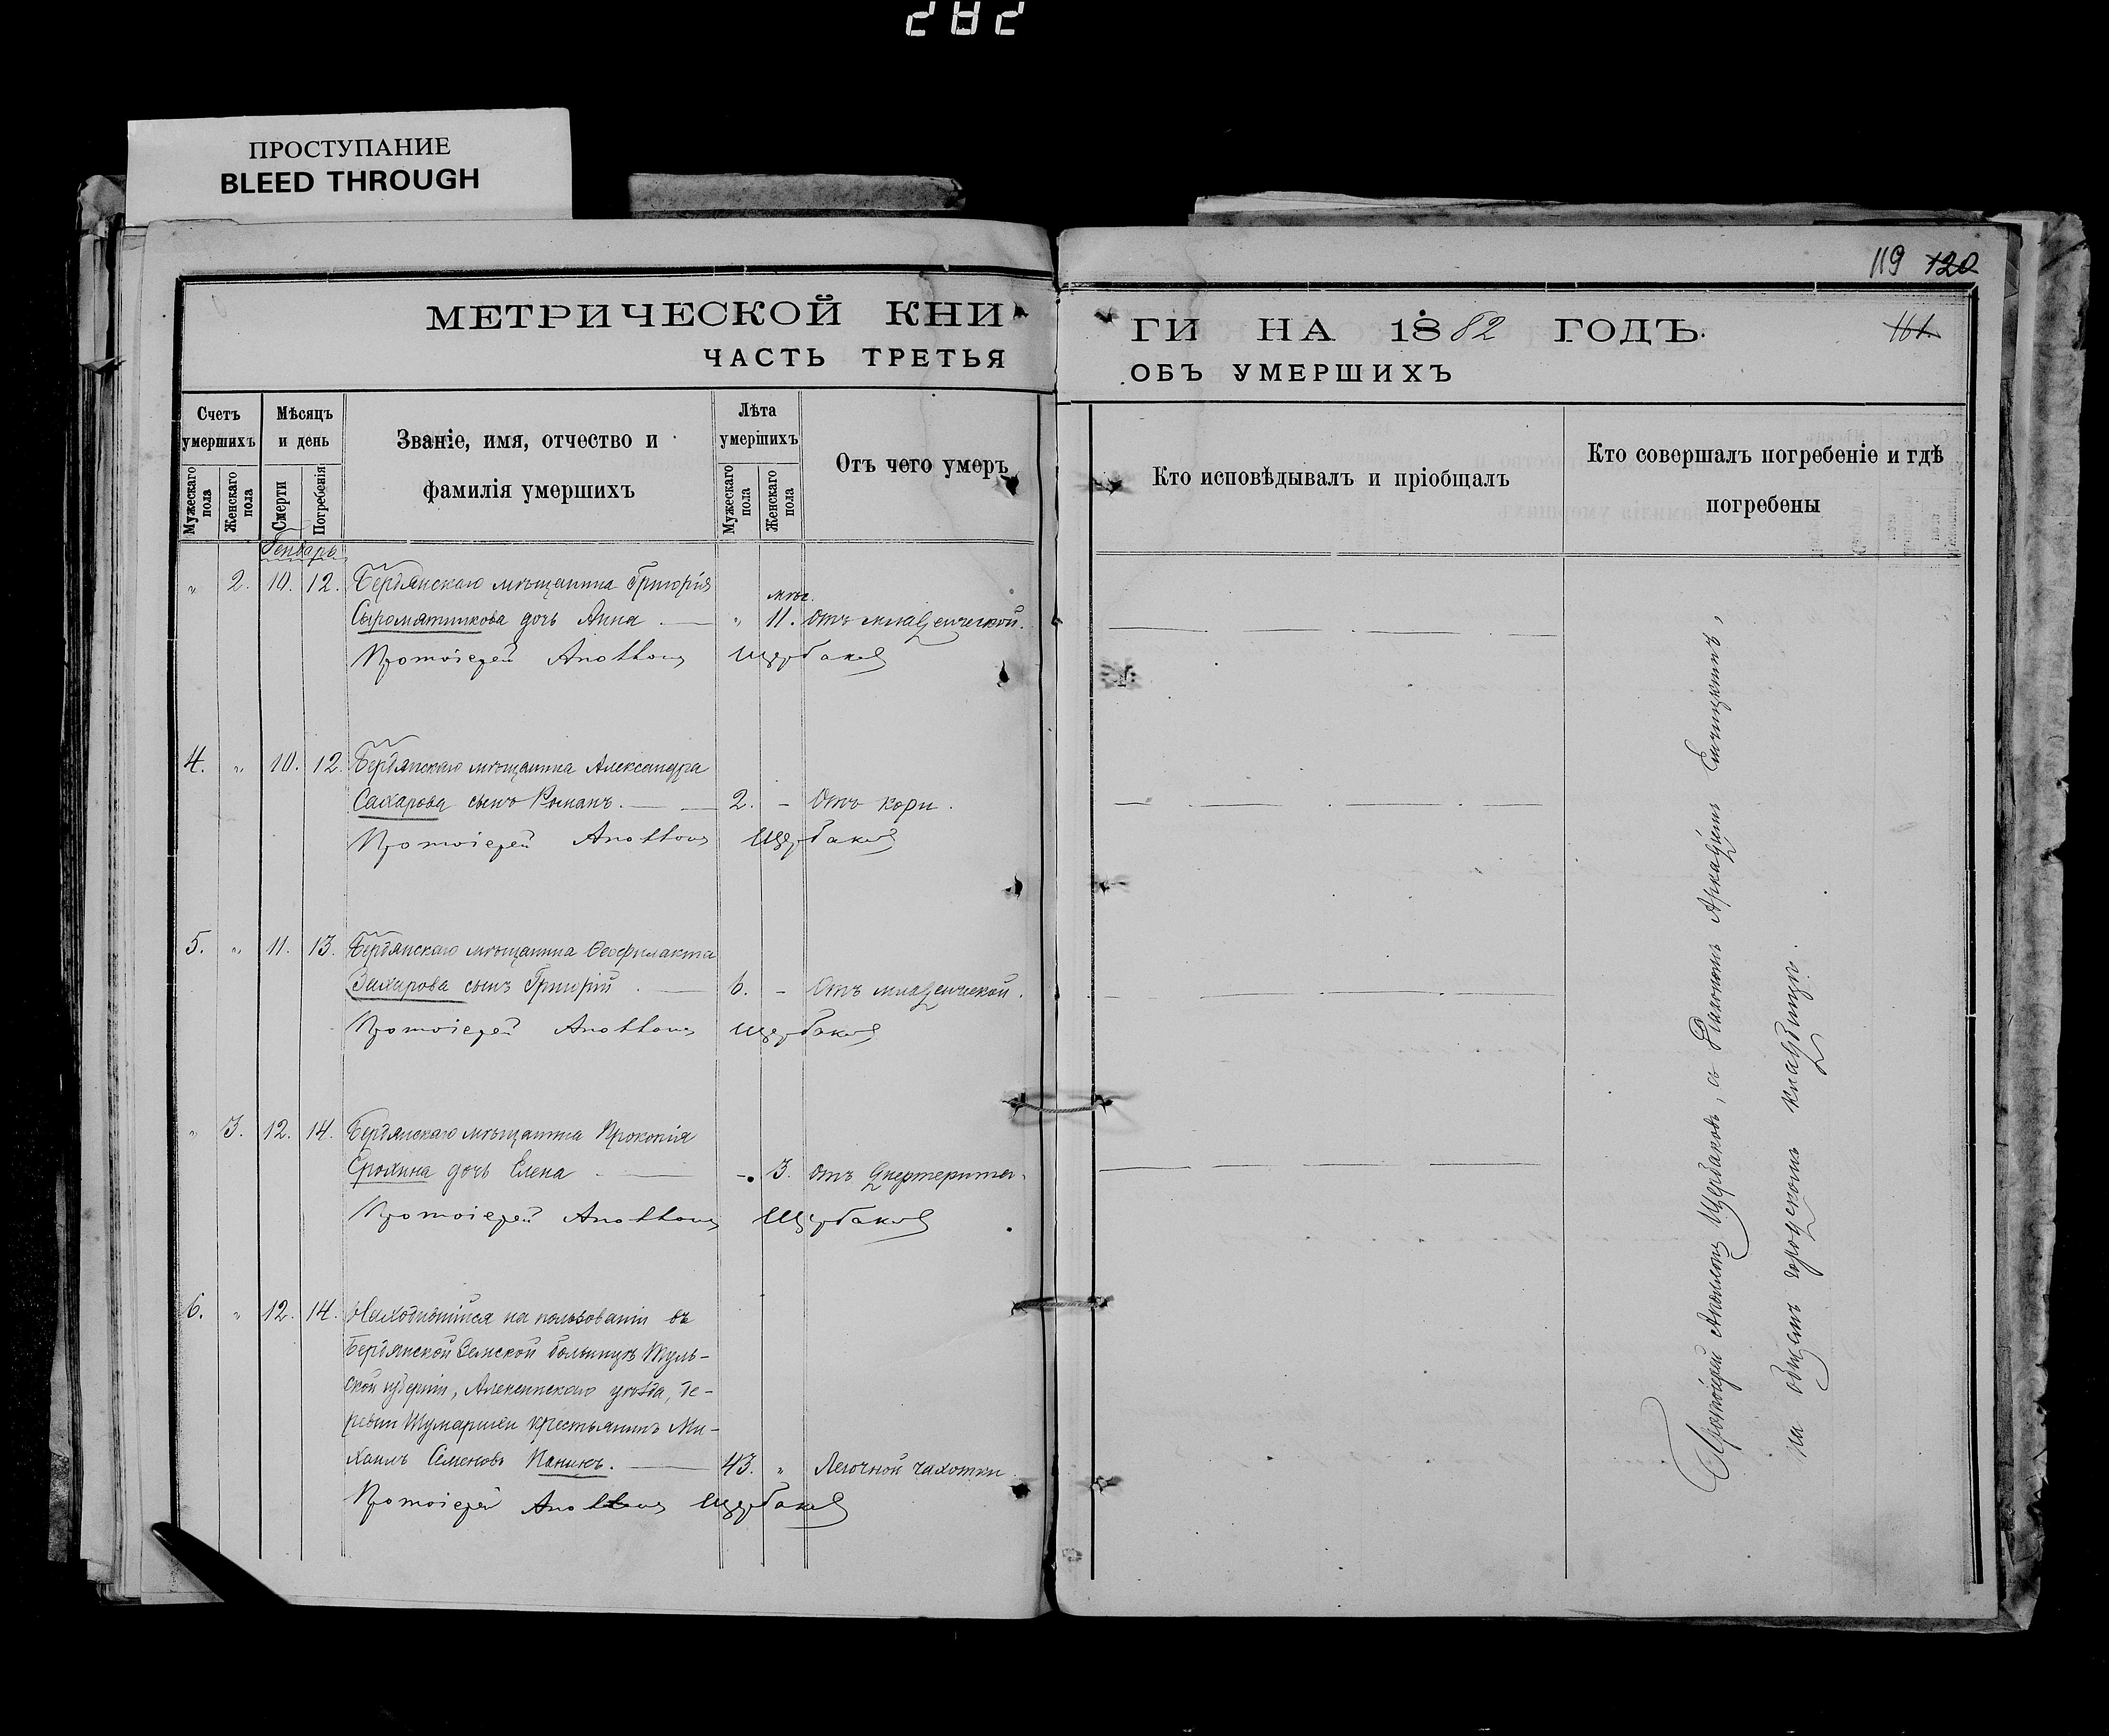 282
ПРОСТУПАНИЕ
BLEED THROUGH
119 120
МЕТРИЧЕСКОЙ КНИ
ГИ НА 1882 ГОДЪ.
161.
ЧАСТЬ ТРЕТЬЯ
ОБЪ УМЕРШИХЪ
Счетъ умершихъ
Мужескаго пола
Женскаго пола
Мѣсяцъ и день
Смерти
Погребенія
Званіе, имя, отчество и
фамилія умершихъ
Лѣта умершихъ
Мужескаго пола
Женскаго пола
Отъ чего умеръ
Кто исповѣдывалъ и пріобщалъ
Кто совершалъ погребеніе и гдѣ
погребены
Генварь
" 2. 10. 12. Бердянскаго мѣщанина Григорія
Сыромятникова дочь Анна. " мѣс. 11. Отъ младенческой.
Протоіерей Щербаковъ
4. " 10. 12. Бердянскаго мѣщанина Александра
Сахарова сынъ Романъ. 2. - Отъ кори.
Протоіерей Щербаковъ
5. " 11. 13. Бердянскаго мѣщанина Ѳеофилакта
Захарова сынъ Григорій. 6. - Отъ младенческой.
Протоіерей Щербаковъ
" 3. 12. 14. Бердянскаго мѣщанина Прокопія
Ерохина дочь Елена - 3. отъ дифтерита.
Протоіерей Щербаковъ
6. " 12. 14. Находившійся на пользованіи въ
Бердянской Земской больницѣ Туль-
ской губерніи, Алексинскаго уѣзда, де-
ревни крестьянинъ Ми-
хаилъ Семеновъ Панинъ. 43. " Легочной чахотки
Протоіерей Щербаковъ
Протоіерей Щербаковъ, съ Діакономъ Аркадіемъ
на общемъ городскомъ кладбищѣ.